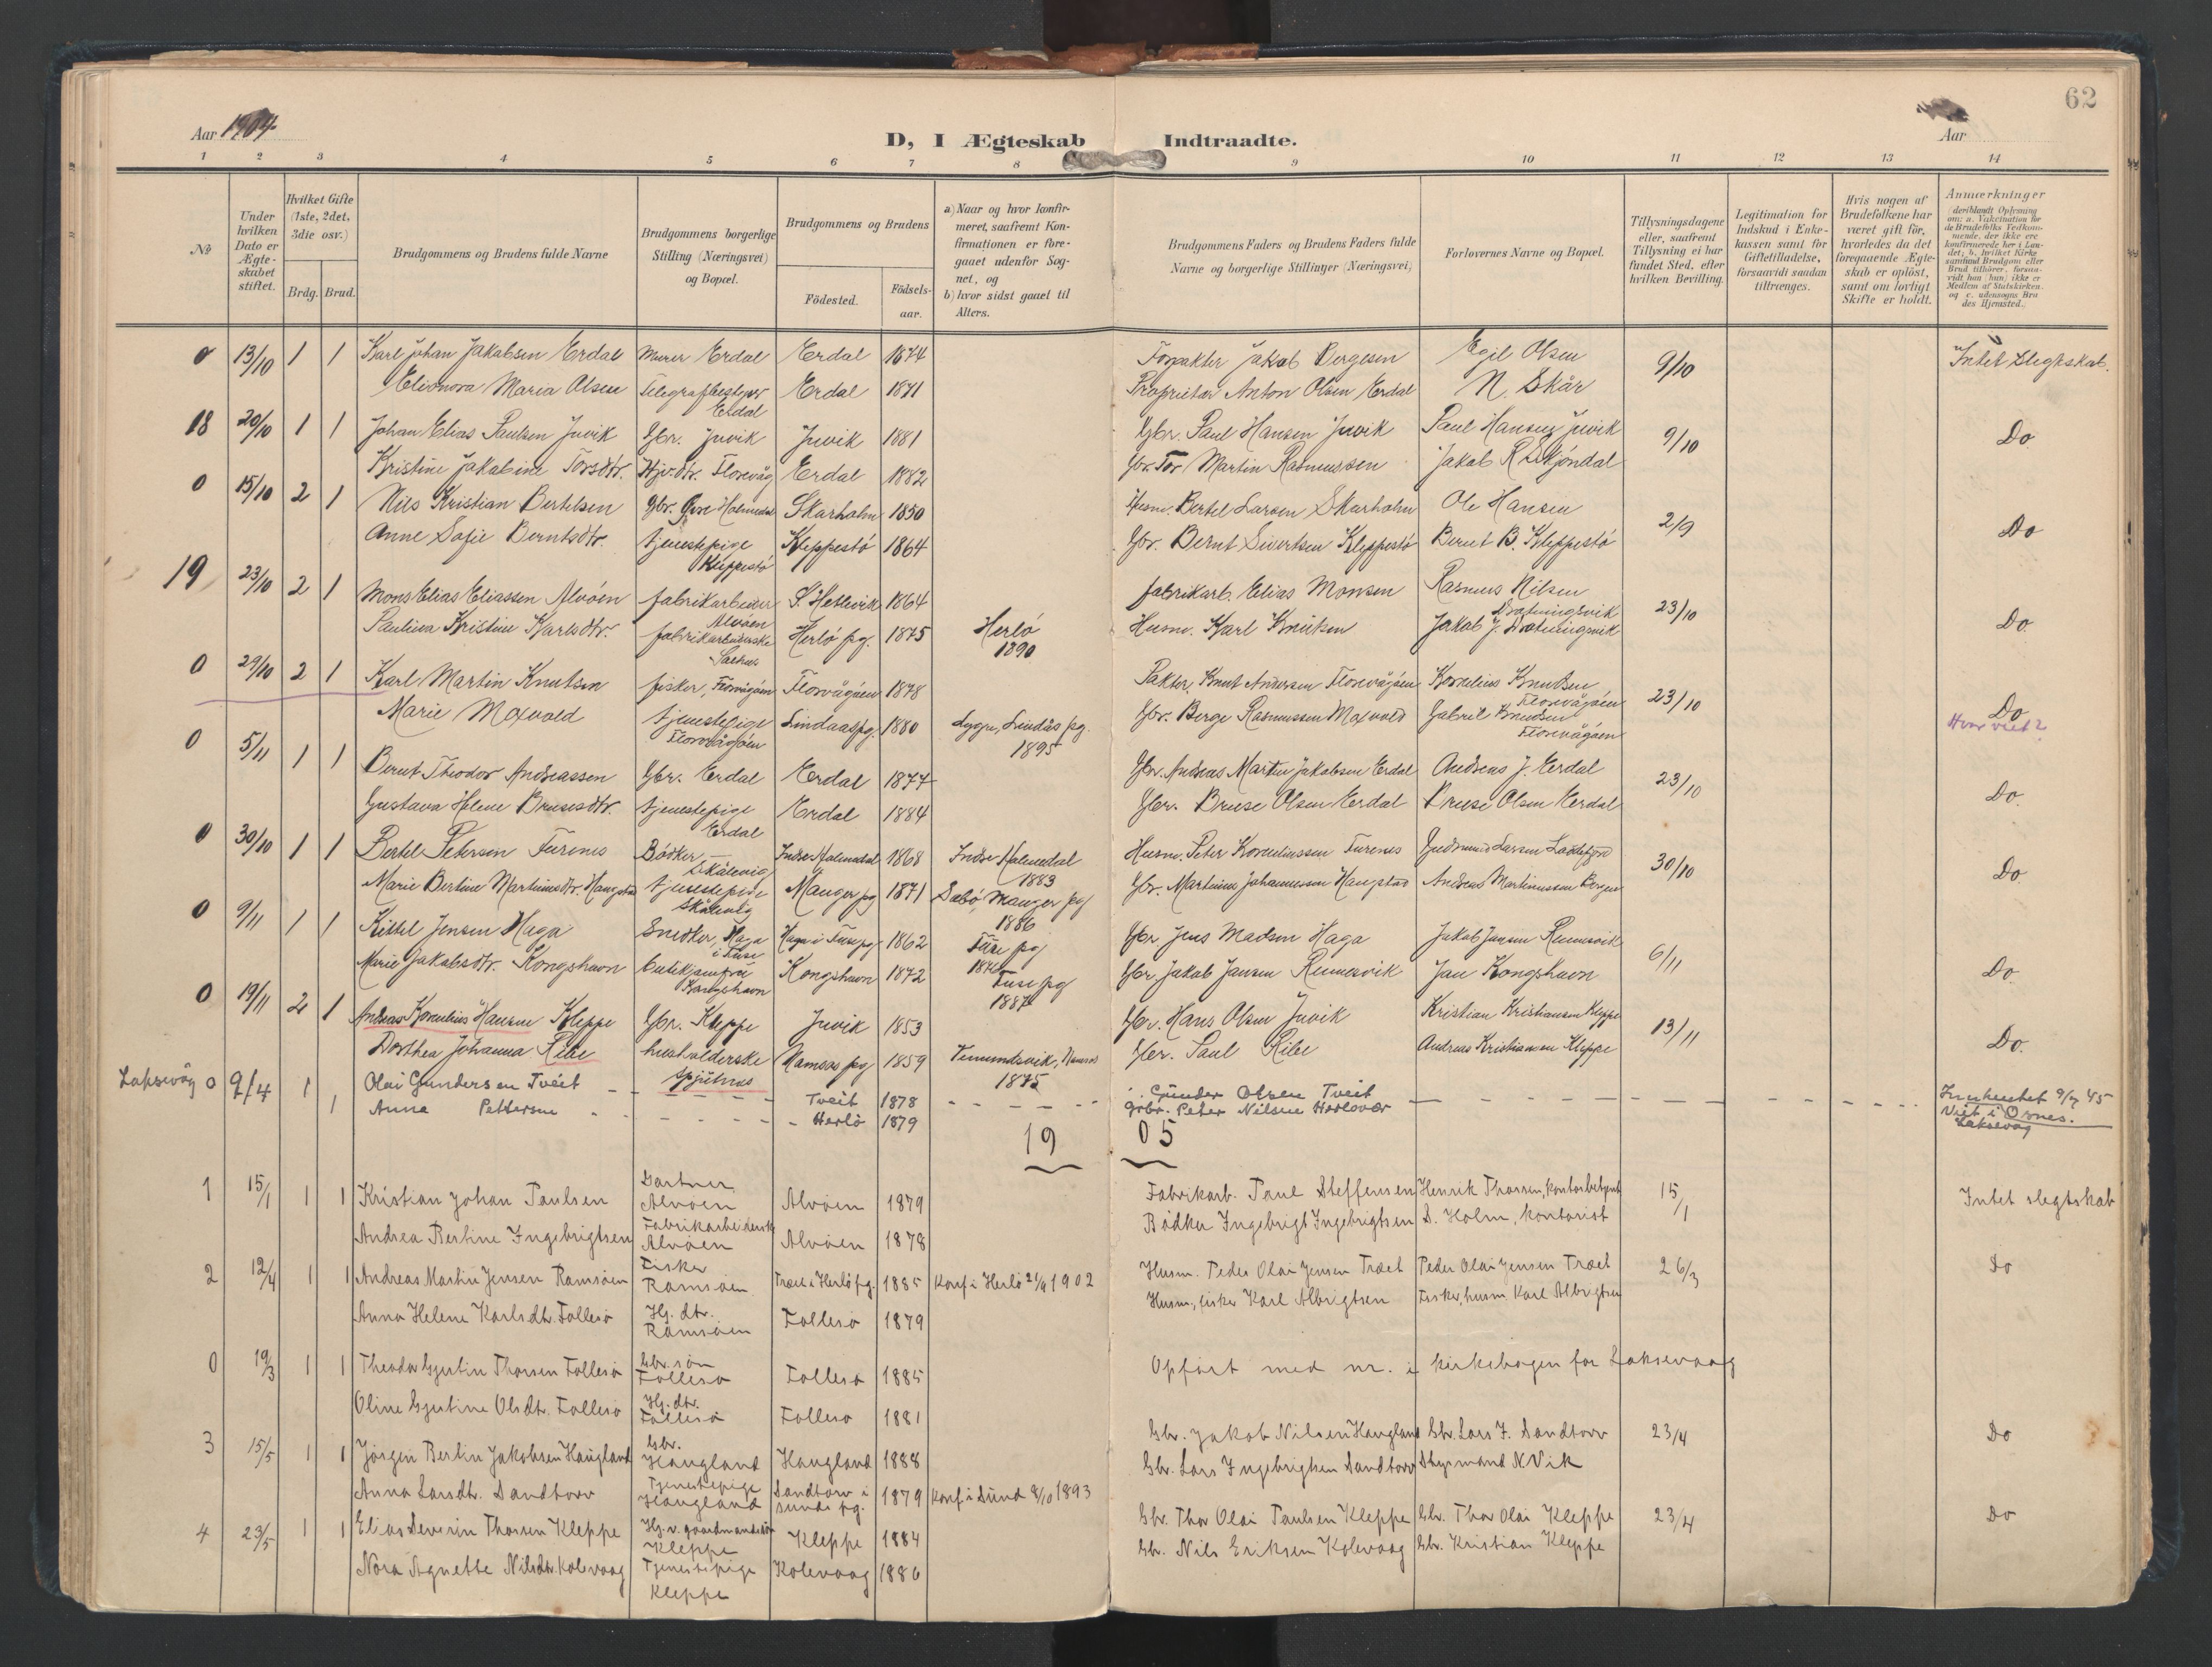 62
Aar 1904
D, I Ægteskab Indtraadte.
Aar
1 2 3 4 5 6 7 8 9 10 11 12 13 14
№
Under hvilken Dato er Ægteskabet stiftet.
Hvilket Gifte (1ste, 2det, 3die osv.)
Brdg. Brud.
Brudgommens og Brudens fulde Navne
Brudgommens borgerlige Stilling (Næringsvei) og Bopæl.
Brudgommens og Brudens
Födested. Födselsaar.
a) Naar og hvor konfirmeret, saafremt Konfirmationen er foregaaet udenfor Sognet, og
b) hvor sidst gaaet til Alters.
Brudgommens Faders og Brudens Faders fulde Navne og borgerlige Stillinger (Næringsvei)
Forlovernes Navne og Bopæl.
Tillysningsdagene eller, saafremt Tillysning ei har fundet Sted, efter hvilken Bevilling.
Legitimation for Indskud i Enkekassen samt for Giftetilladelse, forsaavidt saadan tiltrænges.
Hvis nogen af Brudefolkene har været gift för, hvorledes da det foregaaende Ægteskab er oplöst, samt om lovligt Skifte er holdt.
Anmærkninger (deriblandt Oplysning om: a. Vakcination for de Brudefolks Vedkommende, der ikke ere konfirmerede her i Landet; b. hvilket Kirkesamfund Brudgom eller Brud tilhörer, forsaavidt han (hun) ikke er Medlem af Statskirken, og c. udensogns Brudes Hjemsted.
0 13/10 1 1 Karl Johan Jakobsen Erdal Murer Erdal Erdal 1874 Forpakter Jakob Børgesen Egil Olsen 9/10 Intet Slegtskab.
Elionora Maria Olsen Telegrafbestyrer Erdal Erdal 1871 Proprietær Anton Olsen Erdal N. Skår
18 20/10 1 1 Johan Elias Paulsen Juvik Gbr. Juvik Juvik 1881 Gbr. Paul Hansen Juvik Paul Hansen Juvik 9/10 Do
Kristine Jakobine Torsdtr. Hjv. dtr. Florvåg Erdal 1882 Gbr. Tor Martin Rasmussen Jakob R Skjöndal
0 15/10 2 1 Nils Kristian Bertelsen Gbr. Holmedal Skarholm 1850 Husm. Bertel Larsen Skarholm Ole Hansen 2/9 Do
Anne Sofie Berntsdtr. tjenestepige Kleppestö Kleppestö 1864 Gbr. Bernt Sivertsen Kleppestö Bernt B. Kleppestö
19 23/10 2 1 Mons Elias Eliassen Alvöen fabrikarbeider Alvöen S. Hetlevik 1864 fabrikarb. Elias Monsen Rasmus Nilsen Drotningsvik 23/10 Do.
Paulina Kristine Karlsdtr. fabrikarbeiderske Herlö pg. 1875 Herlö 1890 Husm. Karl Knutsen Jakob J. Drotningsvik
0 29/10 2 1 Karl Martin Knutsen fisker, Florvågöen Florvågöen 1878 Pakter, Knut Andersen Florvågöen Kornelius Knudsen Florvågöen 23/10 Do
Marie Moxvold tjenestepige Florvågöen Lindaas pg. 1880 Lygre, Lindås pg. 1895 Gbr. Berge Rasmussen Moxvold Gabriel Knudsen Florvågöen
Hvor viet?
0 5/11 1 1 Bernt Theodor Andreassen Gbr. Erdal Erdal 1877 Gbr. Andreas Martin Jakobsen Erdal Andreas J. Erdal 23/10 Do.
Gustava Helene Brusesdtr. tjenestepige Erdal Erdal 1884 Gbr. Bruse Olsen Erdal Bruse Olsen Erdal
0 30/10 1 1 Bertel Petersen Furenes Bödker Skålevig Indre Holmedal 1868 Indre Holmedal 1883 Husm. Peter Korneliussen Furenes Gudmund Larsen 30/10 Do
Marie Bertine Martinusdtr. Haugstad tjenestepige Skålevig Manger pg 1871 Sæbö, Manger pg 1886 Gbr. Martinus Johannessen Haugstad Andreas Martinussen Bergen
0 9/11 1 1 Kittel Jensen Haga Snedker, Haga i Fuse Haga i Fuse pg 1862 Fuse pg Gbr Jens Madsen Haga Jakob Jansen Remesvik 6/11 Do
Marie Jakobsdtr. Kongshavn Kongshavn Kongshavn 1872 Fuse pg 1887 Gbr Jakob Jansen Remesvik Jan Kongshavn
0 19/11 2 1 Andreas Kornelius Hansen Kleppe Gbr. Kleppe Juvik 1853 Gbr. Hans Olsen Juvik Kristian Kristiansen Kleppe 13/11 Do.
Dorthea Johanna Ribe husholderske Spjutnes Namsos pg 1859 Namsos 1875 Gbr. Paul Ribe Andreas Kristiansen Kleppe
Laksevåg 0 9/4 1 1 Olai Gundersen Tveit Tveit 1878 Gunder Olsen Tveit Innhentet 9/7 45
Anna Pettersen Herlö 1879 Grbr. Peter Nilsen Herlövær Viet i Ørnes. Laksevåg
19 05
1 15/1 1 1 Kristian Johan Paulsen Gartner Alvöen Alvöen 1879 Fabrikarb. Paul Steffensen Henrik Thorsen, kontorbetjent 15/1 Intet slegtskab
Andrea Bertine Ingebrigtsen Fabrikarbeiderske Alvöen Alvöen 1878 Bödker Ingebrigt Ingebrigtsen S. Holm, kontorist
2 12/4 1 1 Andreas Martin Jensen Ramsöen Fisker Ramsöen Træet i Herlö pg. 1885 Konf. i Herlö 21/9 1902 Husm. Peder Olai Jensen Træet Peder Olai Jensen Træet 26/3 Do
Anna Helene Karlsdtr. Follesö Hj. dtr. Ramsöen Follesö 1879 Husm., fisker Karl Albrigtsen Fisker, husm. Karl Albrigtsen
0 19/3 1 1 Theodor Gjertin Thorsen Follesö Gbr. sön Follesö Follesö 1885 Opfört med nr. i kirkebogen for Laksevaag
Oline Gjertine Olsdtr. Follesö Hj. dtr. Follesö Follesö 1881
3 15/5 1 1 Jörgen Bertin Jakobsen Haugland Gbr. Haugland Haugland 1888 Gbr. Jakob Nilsen Haugland Gbr. Lars I. Sandtorv 23/4 Do
Anna Larsdtr. Sandtorv Tjenestepige Haugland Sandtorv i Sunds pg. 1879 Konf. i Sund 8/10 1893 Gbr. Lars Ingebrigtsen Sandtorv Styrmand N. Vik
4 23/5 1 1 Elias Severin Thorsen Kleppe Hj. v. gaardmandssön Kleppe Kleppe 1884 Gbr. Thor Olai Paulsen Kleppe Gbr. Thor Olai Kleppe 23/4 Do
Nora Agnette Nilsdtr. Kolevaag Tjenestepige Kleppe Kolevaag 1886 Gbr. Nils Eriksen Kolevaag Gbr. Kristian Kleppe